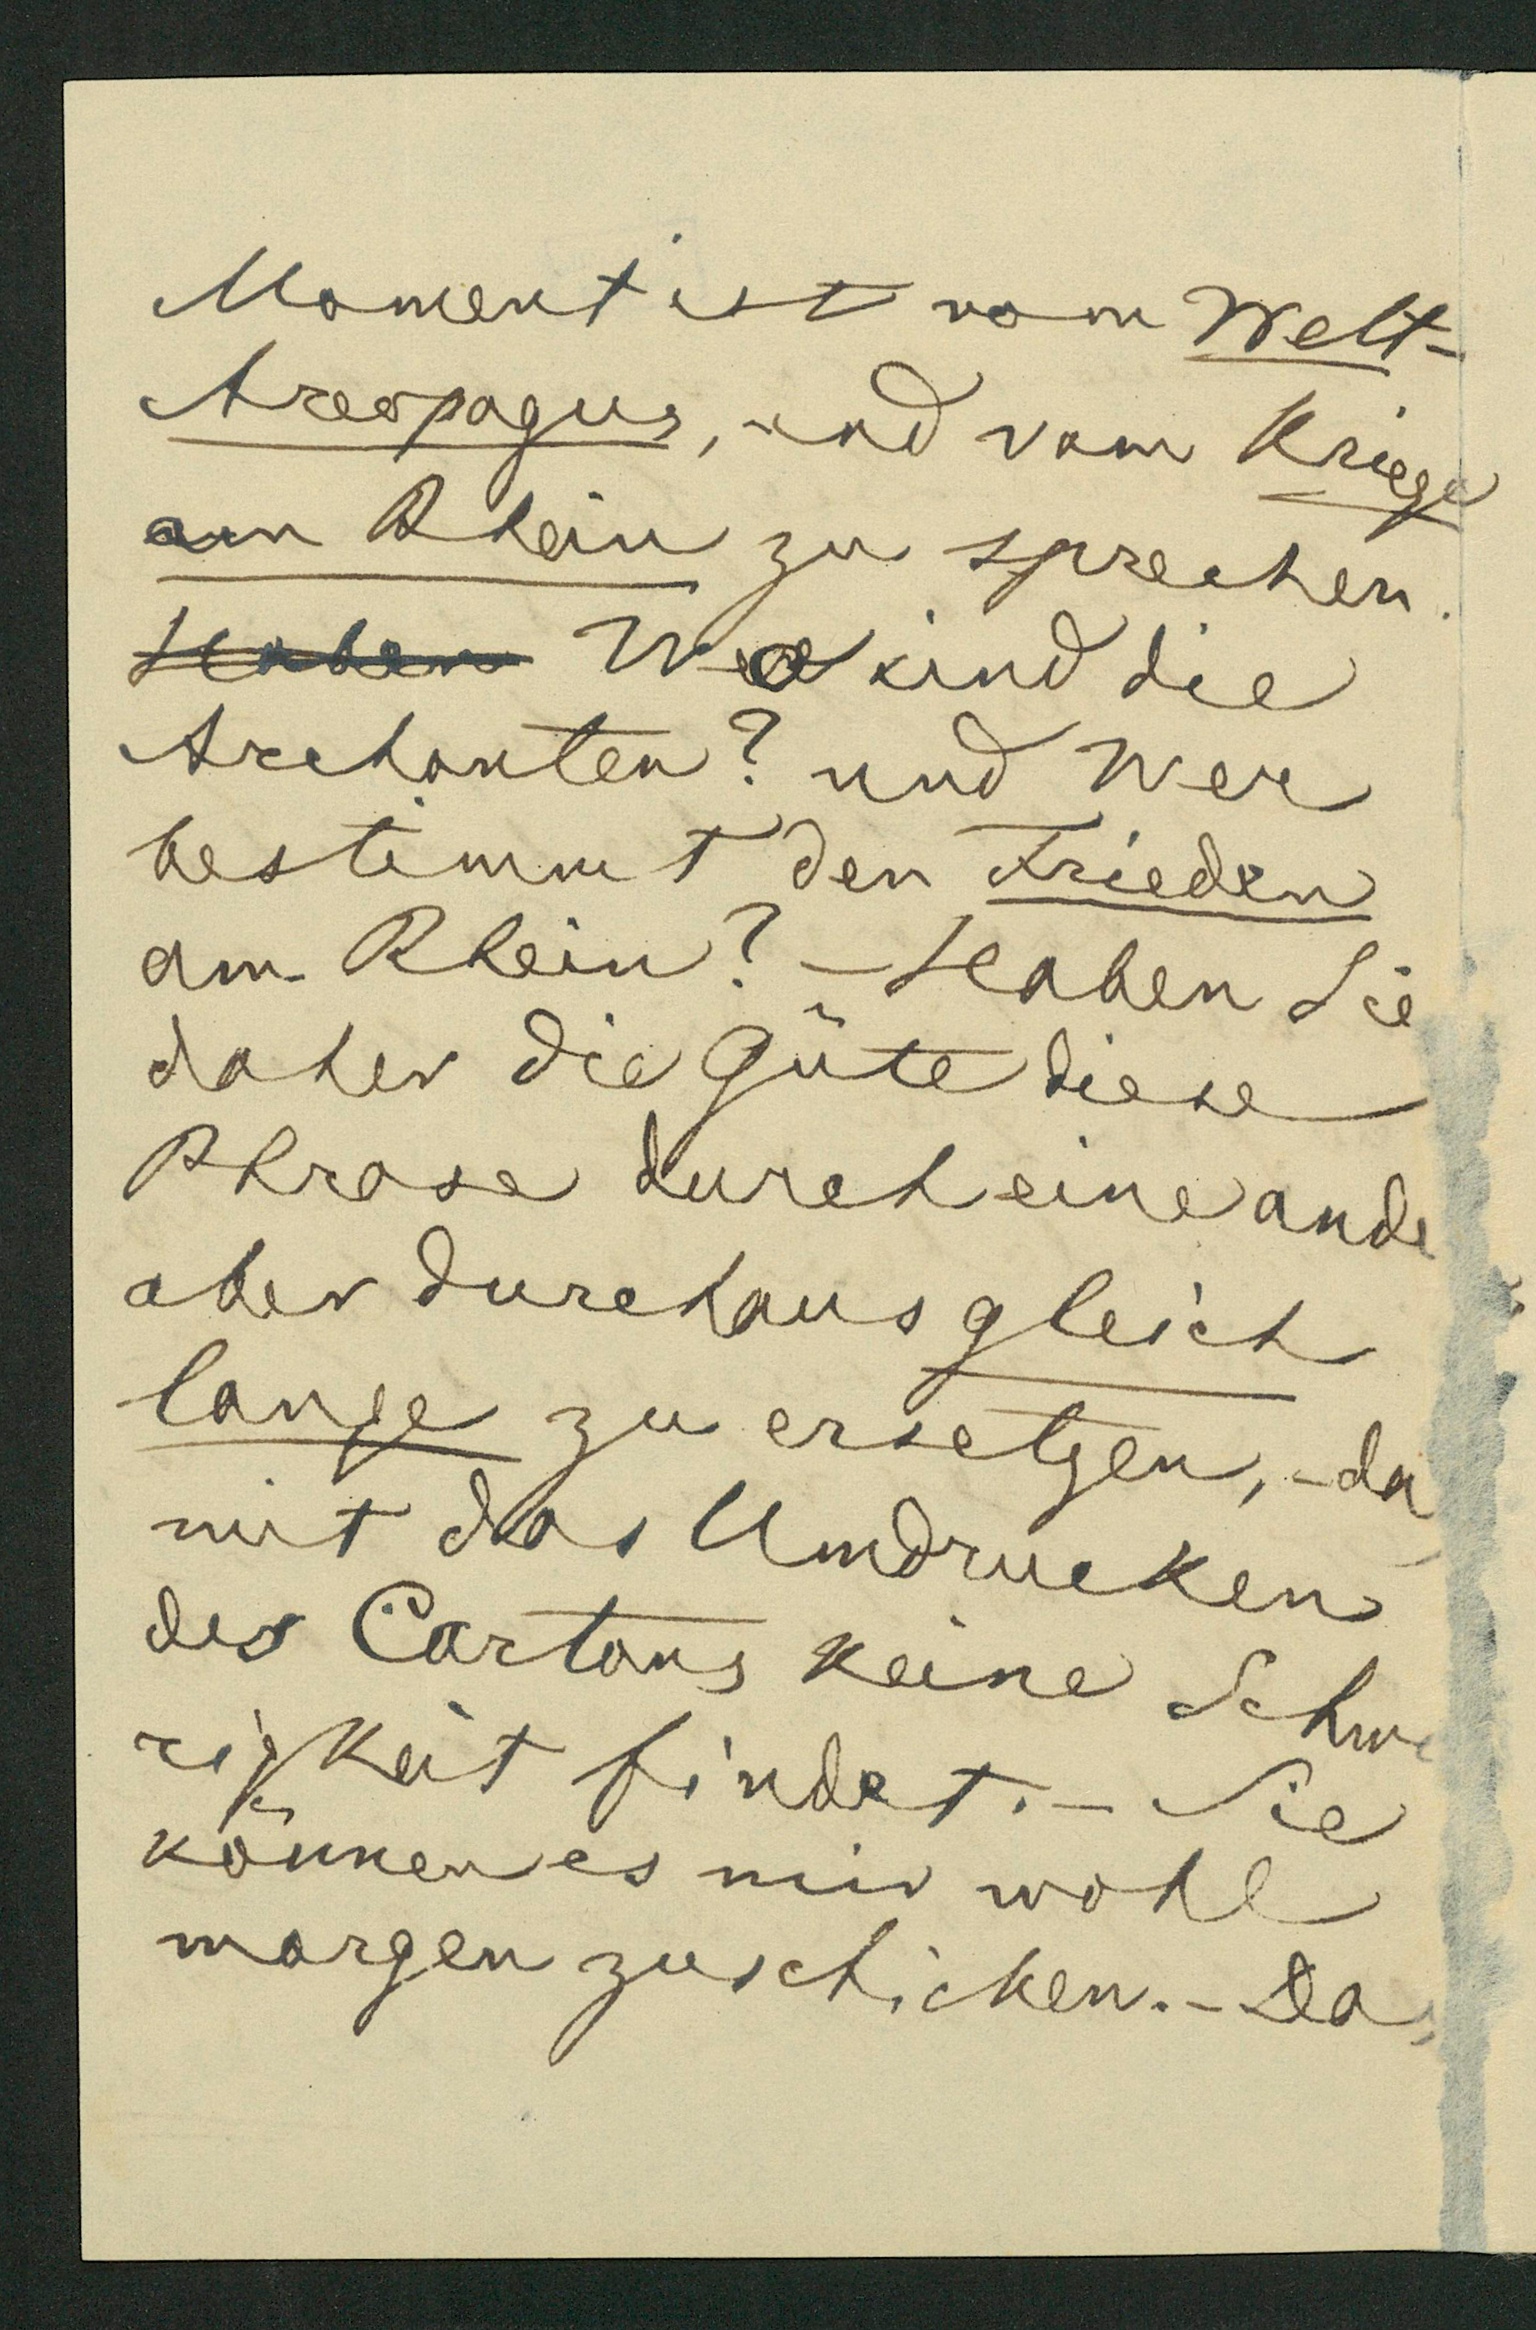 Moment ist vom Welt-
Areopagus, und vom Kriege
am Rhein zu sprechen.
Haben Wo sind die
Archonten? und Wer
bestimmt den Frieden
am Rhein? – Haben Sie
daher die Güte diese
Phrase durch eine ande
aber durchaus gleich
lange zu ersetzen, – da
mit das Umdrucken
des Cartons keine Schwe
rigkeit findet. – Sie
können es mir wohl
morgen zuschicken. – Da